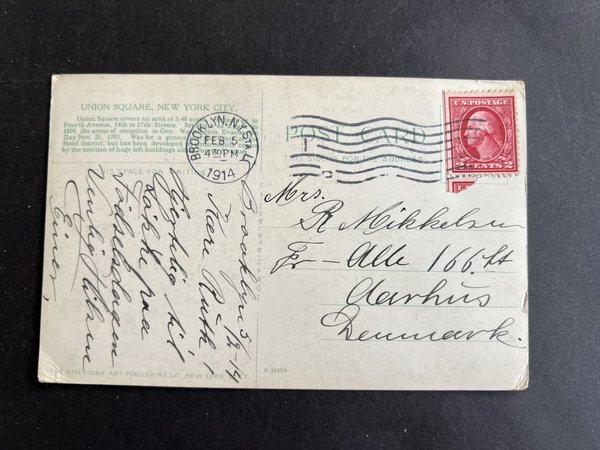 UNION SQUARE, NEW YORK CITY.
Union Square covers an area of 3.48
Fourth Avenue, 14th to 17th Streets.
the scene of reception to Gen. Washington
Day Nov. 25, 1783. Was for a general
Hotel district, but has been developed
by the erection of huge loft buildings
BROOKLYN, N.Y. STA.
FEB 5
4 30 PM
1914
POST CARD
THIS SIDE IS FOR THE ADDRESS
U.S. POSTAGE
2 CENTS 2
THIS SPACE FOR WRITING
Brooklyn 5/2-14
Kære Ruth!
Hjertelig til
Lykke paa
Fødselsdagen
Venlig Hilsen
Einer,
Mrs.
R Mikkelsen
Fr-Alle 166. st
Aarhus
Denmark.
THE AMERICAN ART PUBLISHING CO., NEW YORK CITY.
R-34304